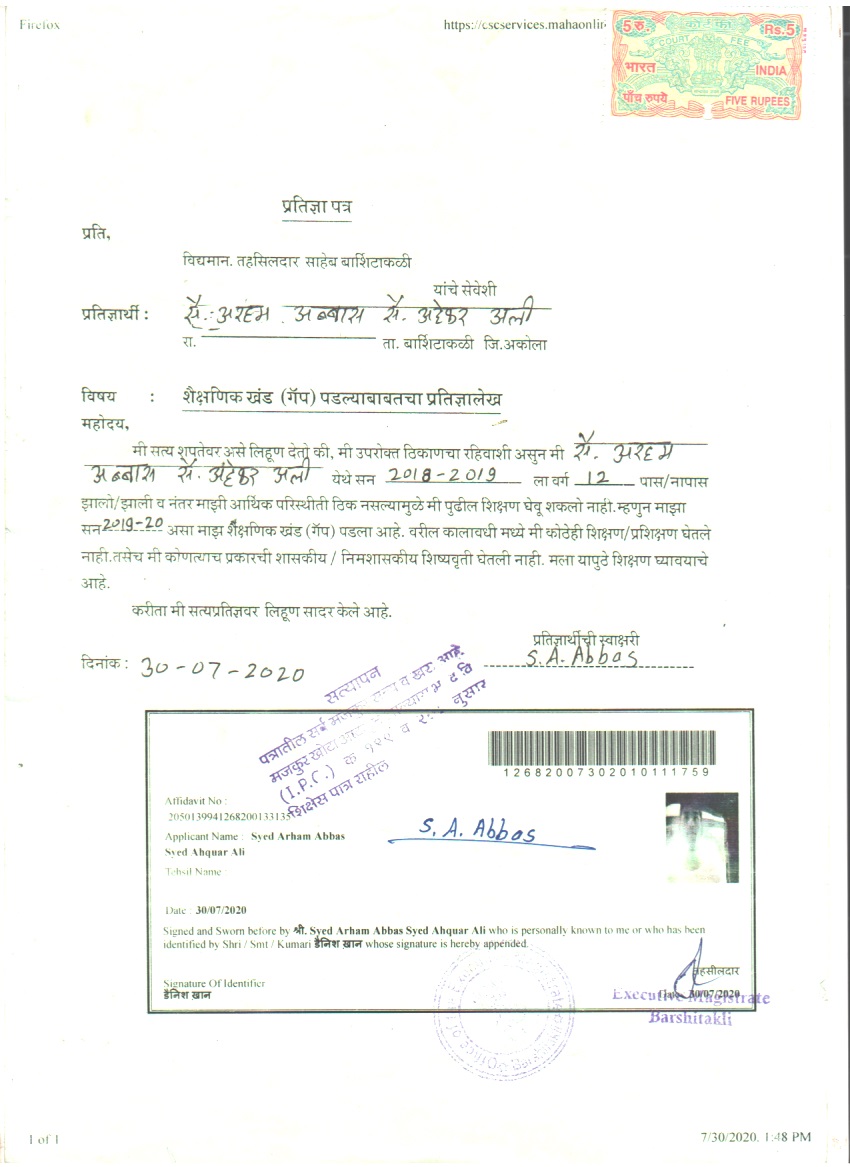 Firefox
https://cscservices.mahaonlin
5 रु. कोर्ट फी Rs.5
COURT FEE
भारत INDIA
पाँच रुपये FIVE RUPEES
प्रतिज्ञा पत्र
प्रति,
विद्यमान. तहसिलदार साहेब बार्शिटाकळी
यांचे सेवेशी
प्रतिज्ञार्थी : सै. अरहम अब्बास सै. अहेफर अली
रा. ता. बार्शिटाकळी जि.अकोला
विषय : शैक्षणिक खंड (गॅप) पडल्याबाबतचा प्रतिज्ञालेख
महोदय,
मी सत्य शपतेवर असे लिहूण देतो की, मी उपरोक्त ठिकाणचा रहिवाशी असुन मी सै. अरहम
अब्बास सै. अहेफर अली येथे सन 2018-2019 ला वर्ग 12 पास/नापास
झालो/झाली व नंतर माझी आर्थिक परिस्थीती ठिक नसल्यामुळे मी पुढील शिक्षण घेवू शकलो नाही. म्हणुन माझा
सन 2019-20 असा माझ शैक्षणिक खंड (गॅप) पडला आहे. वरील कालावधी मध्ये मी कोठेही शिक्षण/प्रशिक्षण घेतले
नाही.तसेच मी कोणत्याच प्रकारची शासकीय / निमशासकीय शिष्यवृती घेतली नाही. मला यापुठे शिक्षण घ्यावयाचे
आहे.
करीता मी सत्यप्रतिज्ञवर लिहूण सादर केले आहे.
प्रतिज्ञार्थीची स्वाक्षरी
दिनांक : 30-07-2020 S.A. Abbas
सत्यापन
पत्रातील सर्व मजकुर सत्य व खरा आहे.
मजकुर खोटा
(I.P.C.) क १९९ व २०० नुसार
शिक्षेस पात्र राहील
12682007302010111759
Affidavit No :
20501399412682001331355
Applicant Name : Syed Arham Abbas
Syed Ahquar Ali
S. A. Abbas
Tehsil Name :
Date : 30/07/2020
Signed and Sworn before by श्री. Syed Arham Abbas Syed Ahquar Ali who is personally known to me or who has been
identified by Shri / Smt / Kumari डैनिश ख़ान whose signature is hereby appended.
तहसीलदार
Signature Of Identifier
डैनिश ख़ान
Date : 30/07/2020
Executive Magistrate
Barshitakli
1 of 1
7/30/2020, 1:48 PM